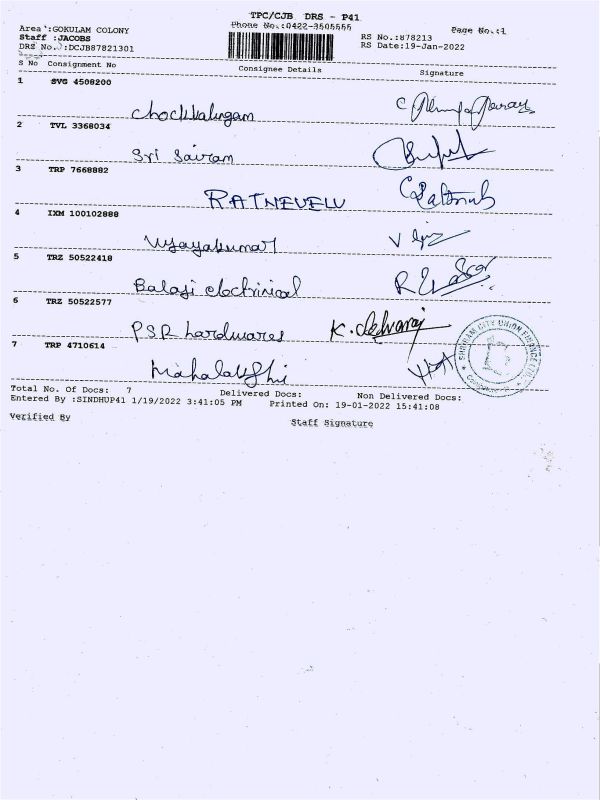 TPC/CJB DRS - P41
Phone No.:0422-3505555
Page No.:1
Area :GOKULAM COLONY
Staff :JACOBS
RS No.:878213
DRS No.:DCJB87821301
RS Date:19-Jan-2022
S No Consignment No Consignee Details Signature
1 SVG 4508200
Chockkalingam
2 TVL 3368034
Sri Sairam
3 TRP 7668882
RATNEVELU
4 IXM 100102888
Vijayakumar
5 TRZ 50522418
Balaji electrinical
6 TRZ 50522577
PSR hardwares K. Selvaraj
7 TRP 4710614
Mahalakshmi
SHRIRAM CITY UNION FINANCE LTD.
Total No. Of Docs: 7 Delivered Docs: Non Delivered Docs:
Entered By :SINDHUP41 1/19/2022 3:41:05 PM Printed On: 19-01-2022 15:41:08
Verified By Staff Signature